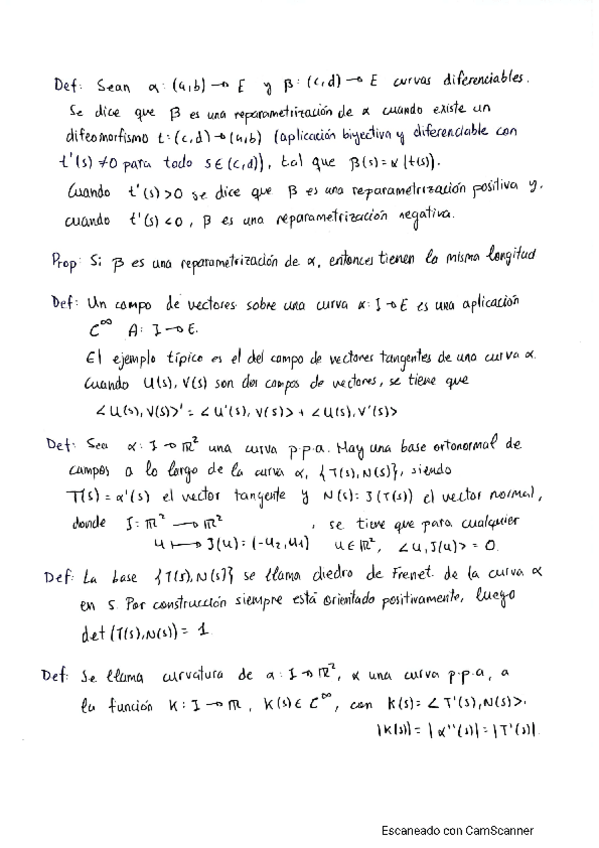 Def: Sean α: (a,b) → E y β: (c,d) → E curvas diferenciables.
Se dice que β es una reparametrización de α cuando existe un
difeomorfismo t: (c,d) → (a,b) (aplicación biyectiva y diferenciable con
t'(s) ≠ 0 para todo s ∈ (c,d)), tal que β(s) = α(t(s)).
Cuando t'(s) > 0 se dice que β es una reparametrización positiva y,
cuando t'(s) < 0, β es una reparametrización negativa.
Prop: Si β es una reparametrización de α, entonces tienen la misma longitud
Def: Un campo de vectores sobre una curva α: I → E es una aplicación
C^∞ A: I → E.
El ejemplo típico es el del campo de vectores tangentes de una curva α.
Cuando U(s), V(s) son dos campos de vectores, se tiene que
<U(s), V(s)>' = <U'(s), V(s)> + <U(s), V'(s)>
Def: Sea α: I → ℝ² una curva p.p.a. Hay una base ortonormal de
campos a lo largo de la curva α, {T(s), N(s)}, siendo
T(s) = α'(s) el vector tangente y N(s) = J(T(s)) el vector normal,
donde J: ℝ² → ℝ² , se tiene que para cualquier
u ↦ J(u) = (-u₂, u₁) u ∈ ℝ², <u, J(u)> = 0.
Def: La base {T(s), N(s)} se llama diedro de Frenet de la curva α
en s. Por construcción siempre está orientado positivamente, luego
det(T(s), N(s)) = 1
Def: Se llama curvatura de α: I → ℝ², α una curva p.p.a, a
la función K: I → ℝ, K(s) ∈ C^∞, con K(s) = <T'(s), N(s)>.
|K(s)| = |α''(s)| = |T'(s)|.
Escaneado con CamScanner